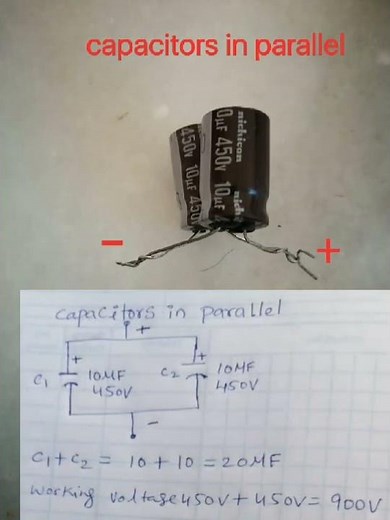 capacitors in parallel
nichicon
0µF 450V 10µF
nich
450V 10µF 450
-
+
capacitors in parallel
+
+
+
C1
10MF
450V
C2
10MF
450V
-
C1+C2 = 10+10 = 20MF
working voltage 450V + 450V = 900V